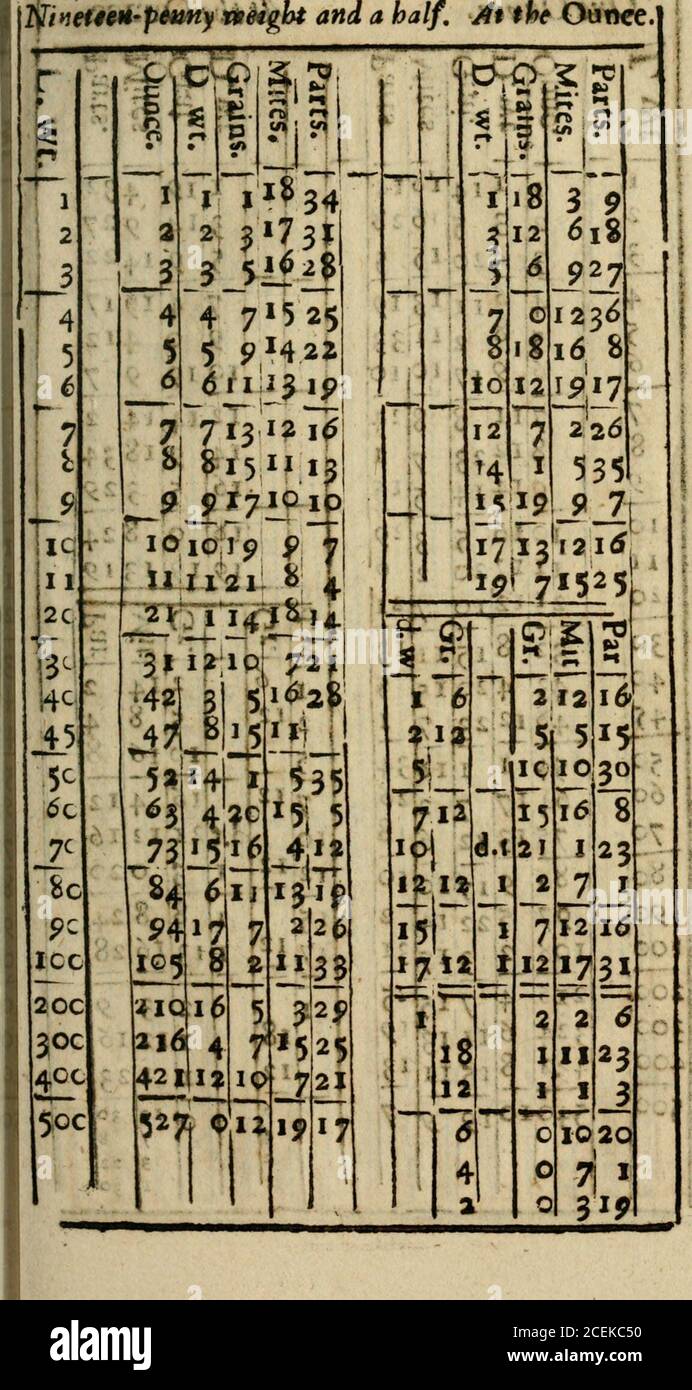 Nineteen-penny weight and a half. At the Ounce.
L. wt. Ounce. D wt. Grains. Mites, Parts. D. wt. Grains. Mites. Parts.
1 1 1 1 18 34 1 18 3 9
2 2 2 3 17 31 3 12 6 18
3 3 3 5 16 28 5 6 9 27
4 4 4 7 15 25 7 0 12 36
5 5 5 9 14 22 8 18 16 8
6 6 6 11 13 19 10 12 19 17
7 7 7 13 12 16 12 7 2 26
8 8 15 11 13 14 1 5 35
9 9 9 17 10 10 15 19 9 7
10 10 10 19 9 7 17 13 12 16
11 11 11 21 8 4 19 7 15 25
20 21 1 14 18 14 d.w Gr. Gr. Mit Par
30 31 12 10 7 21
40 42 3 5 16 28 1 6 2 12 16
45 47 8 15 11 2 12 5 5 15
50 52 14 1 5 35 5 10 10 30
60 63 4 20 15 5 7 12 15 16 8
70 73 15 16 4 12 10 d.t 21 1 23
80 84 6 11 13 19 12 12 1 2 7 1
90 94 17 7 2 26 15 1 7 12 16
100 105 8 2 11 33 17 12 1 12 17 31
200 210 16 5 3 29 1 2 2 6
300 216 4 7 15 25 18 1 11 23
400 421 12 10 7 21 12 1 1 3
500 527 0 12 19 17 6 0 10 20
4 0 7 1
2 0 3 19
alamy
Image ID: 2CEKC50
www.alamy.com